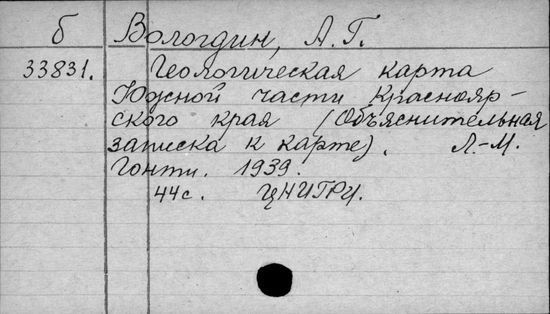 б Вологдин, А. Г.
33831. Геологическая карта
Южной части Краснояр-
ского края (Объяснительная
записка к карте). Л.-М.
Гонти. 1939.
44 с. ЦНИГРИ.